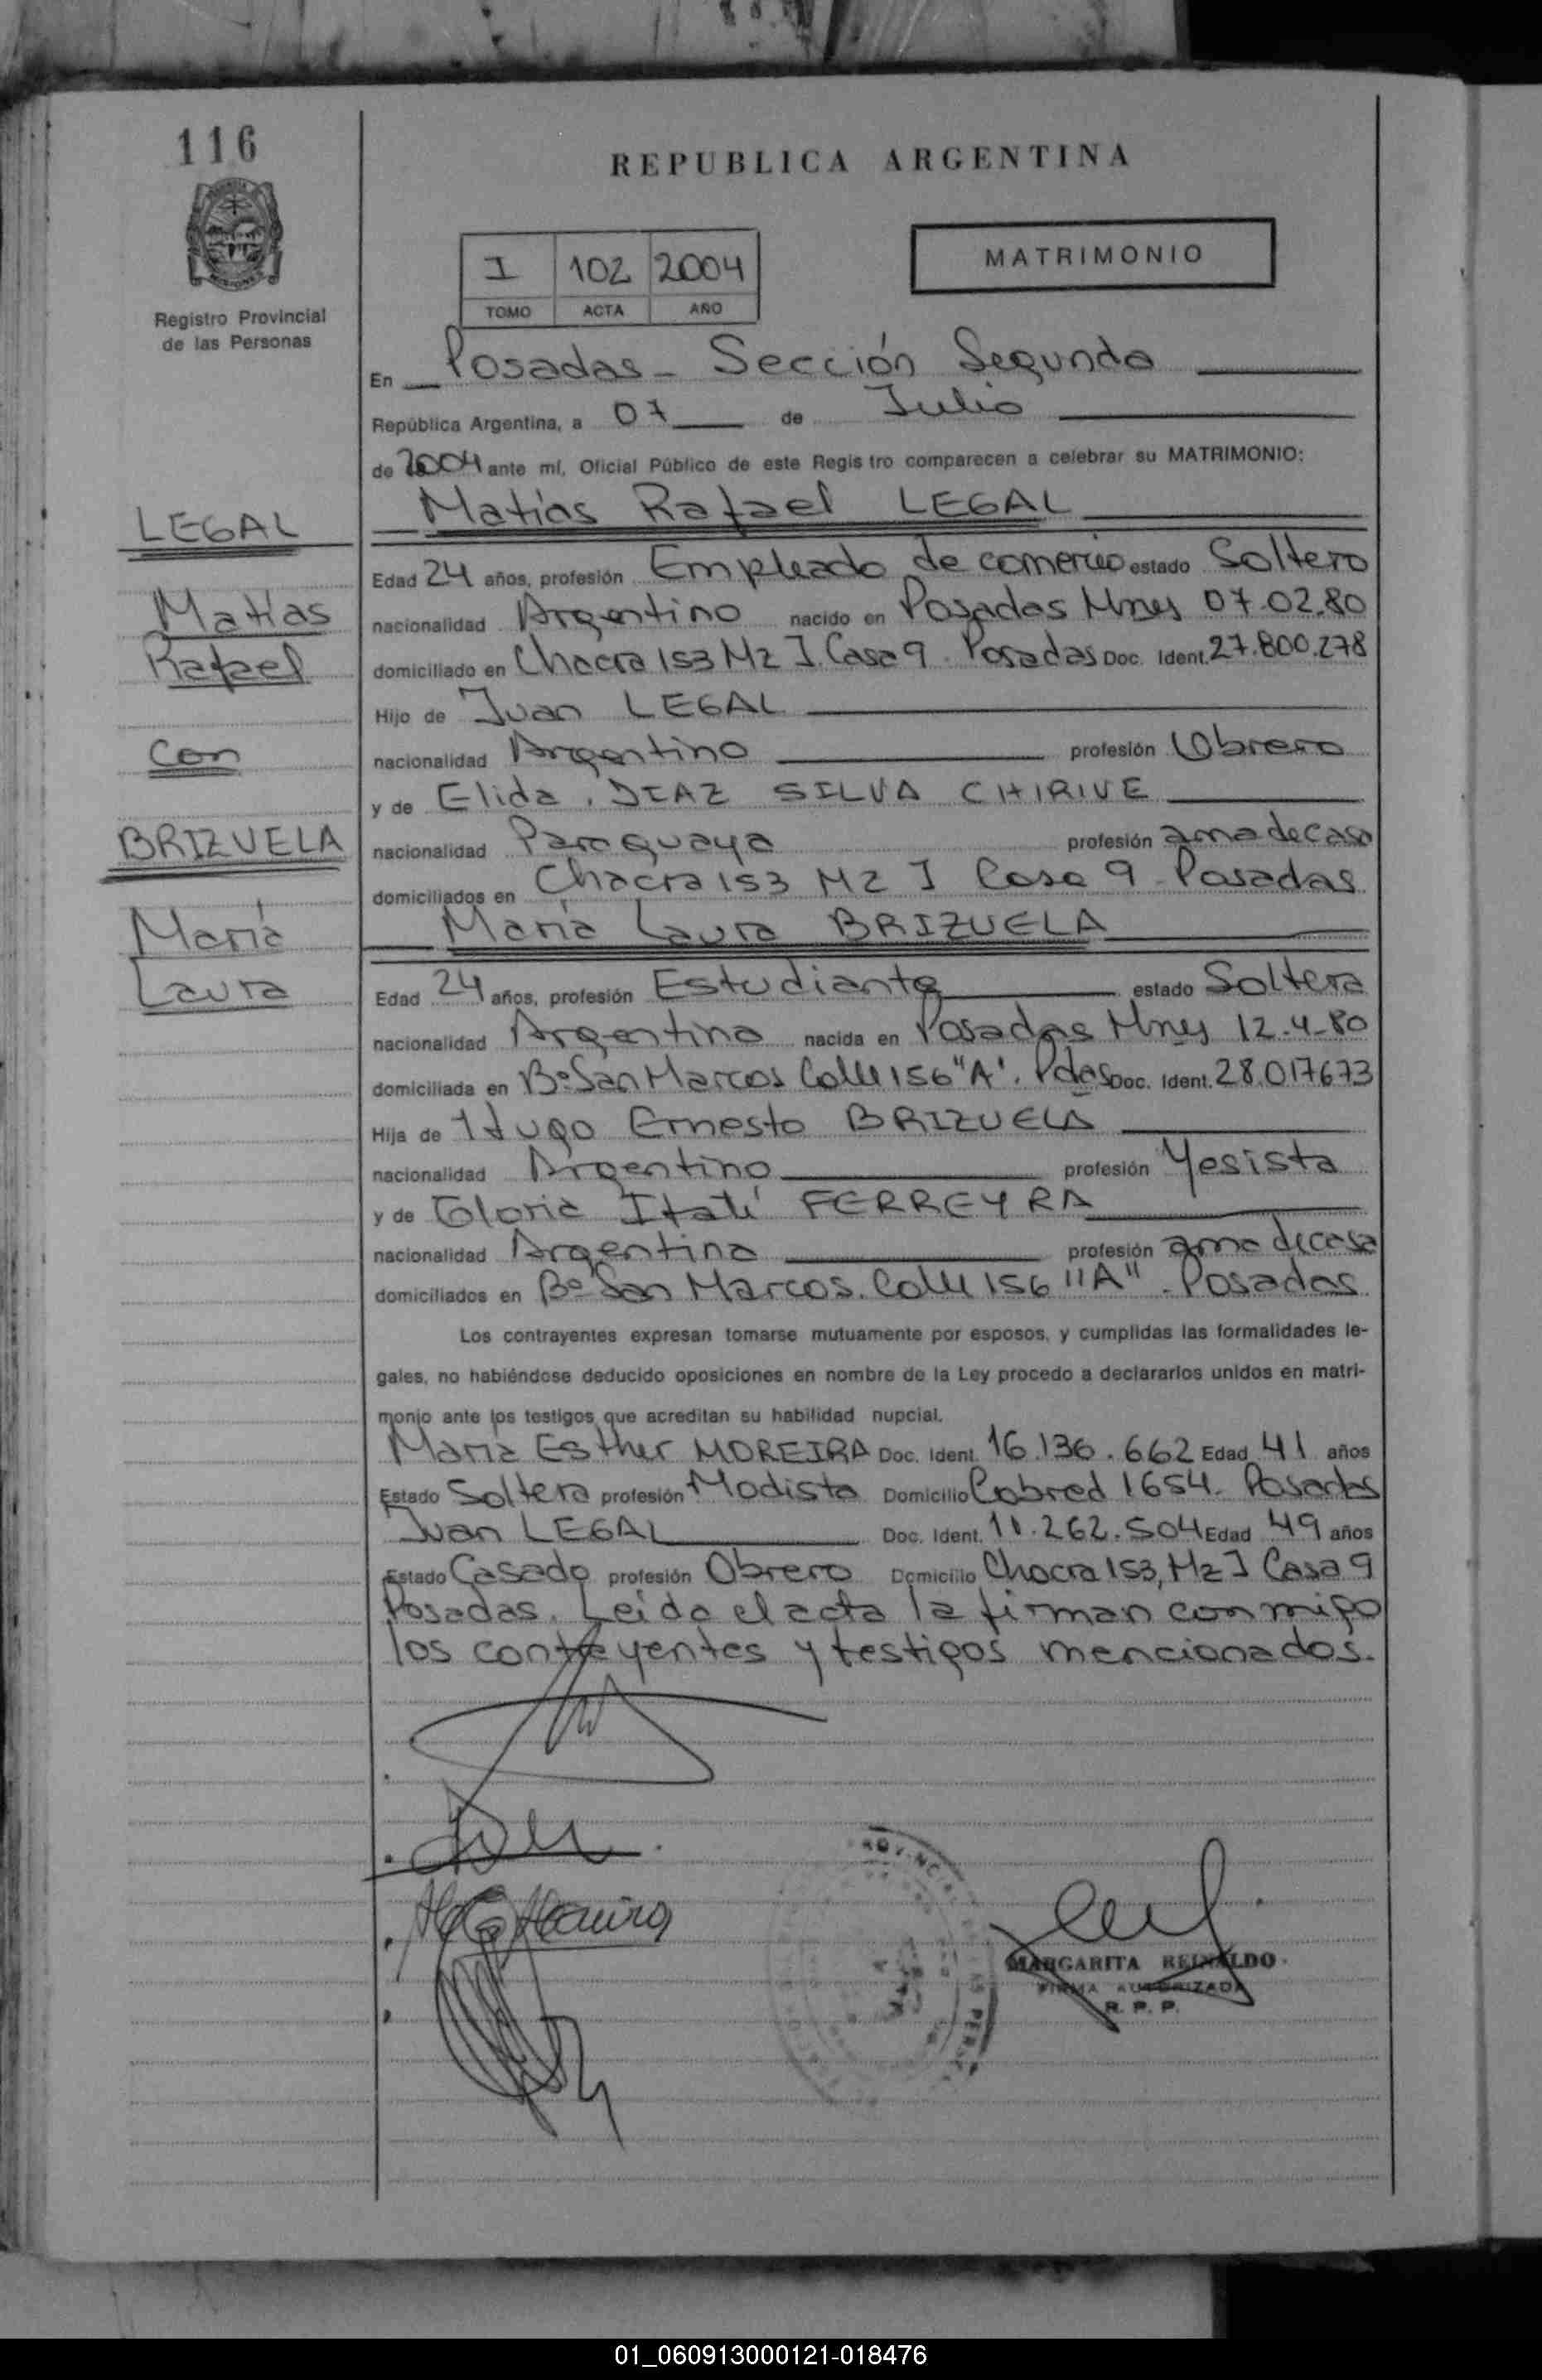 116
REPUBLICA ARGENTINA
MATRIMONIO
I 102 2004
TOMO ACTA AÑO
Registro Provincial
de las Personas
En Posadas - Sección Segunda
República Argentina, a 07 de Julio
de 2004 ante mí, Oficial Público de este Registro comparecen a celebrar su MATRIMONIO:
LEGAL
Matías
Rafael
Con
BRIZUELA
María
Laura
Matías Rafael LEGAL
Edad 24 años, profesión Empleado de comercio estado Soltero
nacionalidad Argentino nacido en Posadas Mnes 07.02.80
domiciliado en Chacra 153 Mz I. Casa 9. Posadas Doc. Ident. 27.800.278
Hijo de Juan LEGAL
nacionalidad Argentino profesión Obrero
y de Elida. DIAZ SILVA CHIRIVE
nacionalidad Paraguaya profesión ama de casa
domiciliados en Chacra 153 Mz I Casa 9 - Posadas
María Laura BRIZUELA
Edad 24 años, profesión Estudiante estado Soltera
nacionalidad Argentina nacida en Posadas Mnes 12-4-80
domiciliada en Bº San Marcos Calle 156 "A". Pdas Doc. Ident. 28.017673
Hija de Hugo Ernesto BRIZUELA
nacionalidad Argentino profesión Yesista
y de Gloria Itatí FERREYRA
nacionalidad Argentina profesión ama de casa
domiciliados en Bº San Marcos. Calle 156 "A" - Posadas
Los contrayentes expresan tomarse mutuamente por esposos, y cumplidas las formalidades le-
gales, no habiéndose deducido oposiciones en nombre de la Ley procedo a declararlos unidos en matri-
monio ante los testigos que acreditan su habilidad nupcial.
María Esther MOREIRA Doc. Ident. 16.136.662 Edad 41 años
Estado Soltera profesión Modista Domicilio Cobred 1654. Posadas
Juan LEGAL Doc. Ident. 11.262.504 Edad 49 años
Estado Casado profesión Obrero Domicilio Chacra 153, Mz I Casa 9
Posadas. Leída el acta la firman conmigo
los contrayentes y testigos mencionados.
MARGARITA REINALDO
FIRMA AUTORIZADA
R. P. P.
01_060913000121-018476